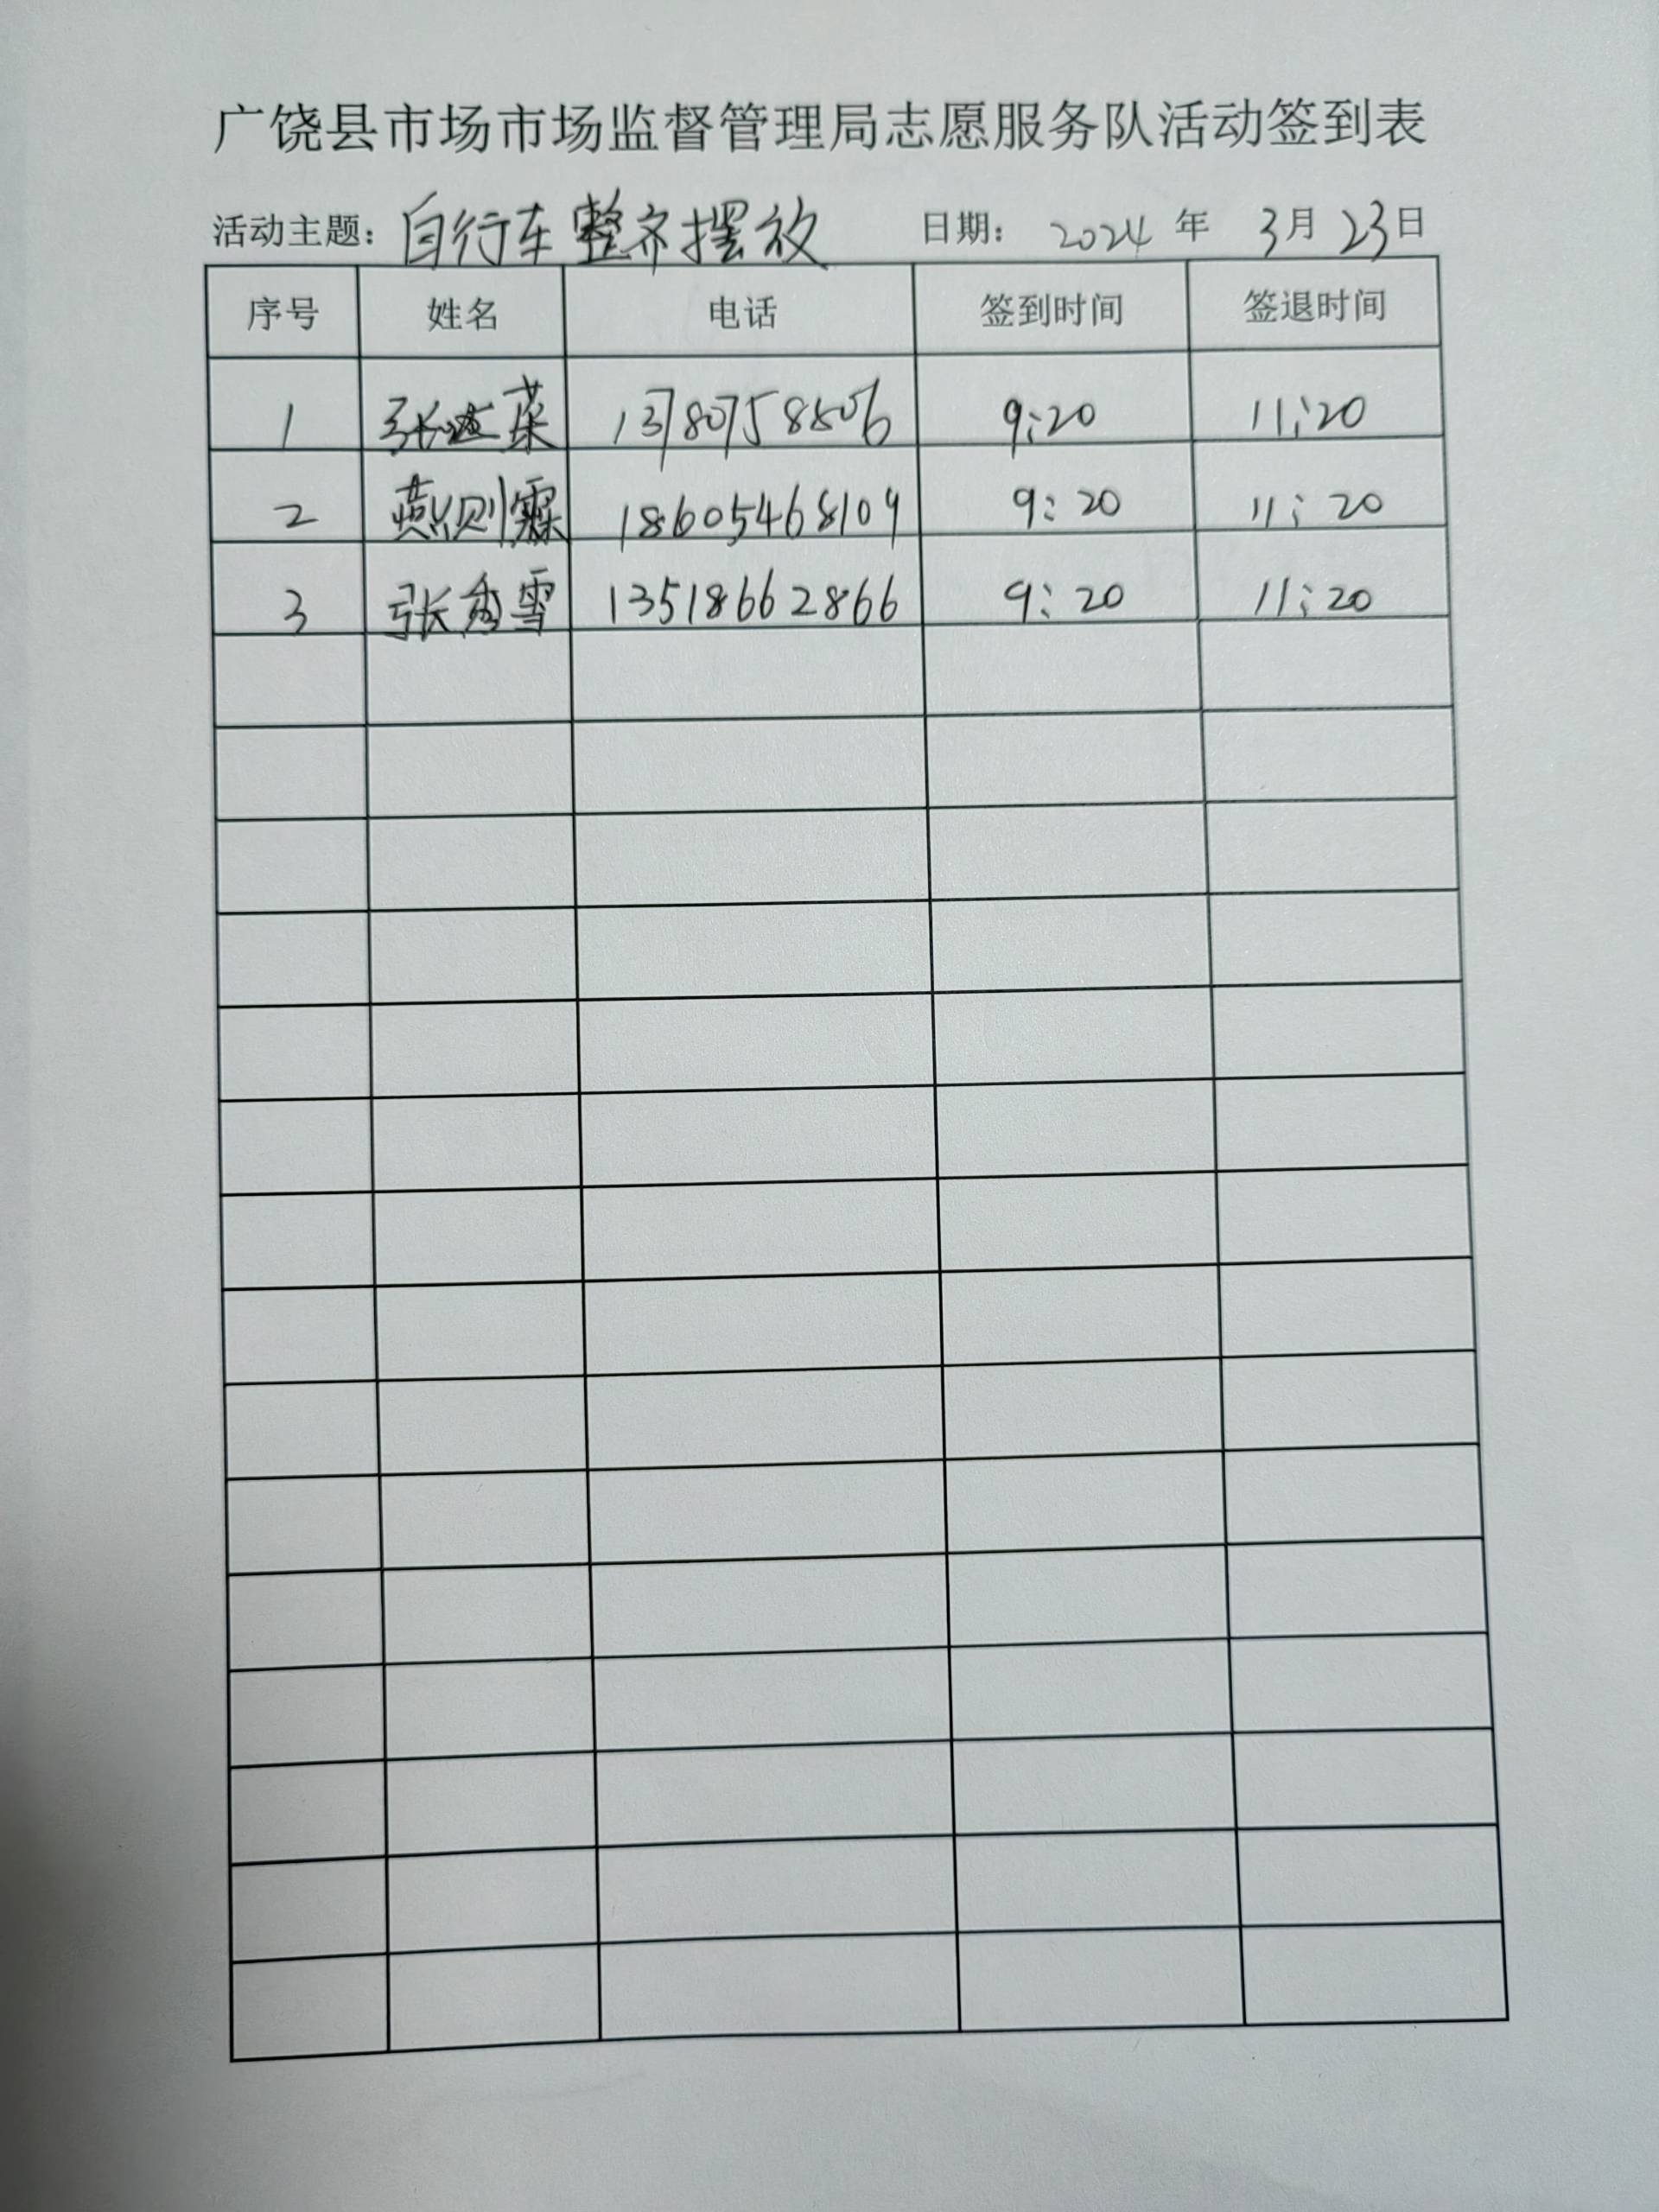 广饶县市场市场监督管理局志愿服务队活动签到表
活动主题：自行车整齐摆放 日期： 2024 年 3月 23日
序号 姓名 电话 签到时间 签退时间
1 13780758806 9:20 11:20
2 燕则霖 18605468109 9:20 11:20
3 张秀雪 13518662866 9:20 11:20